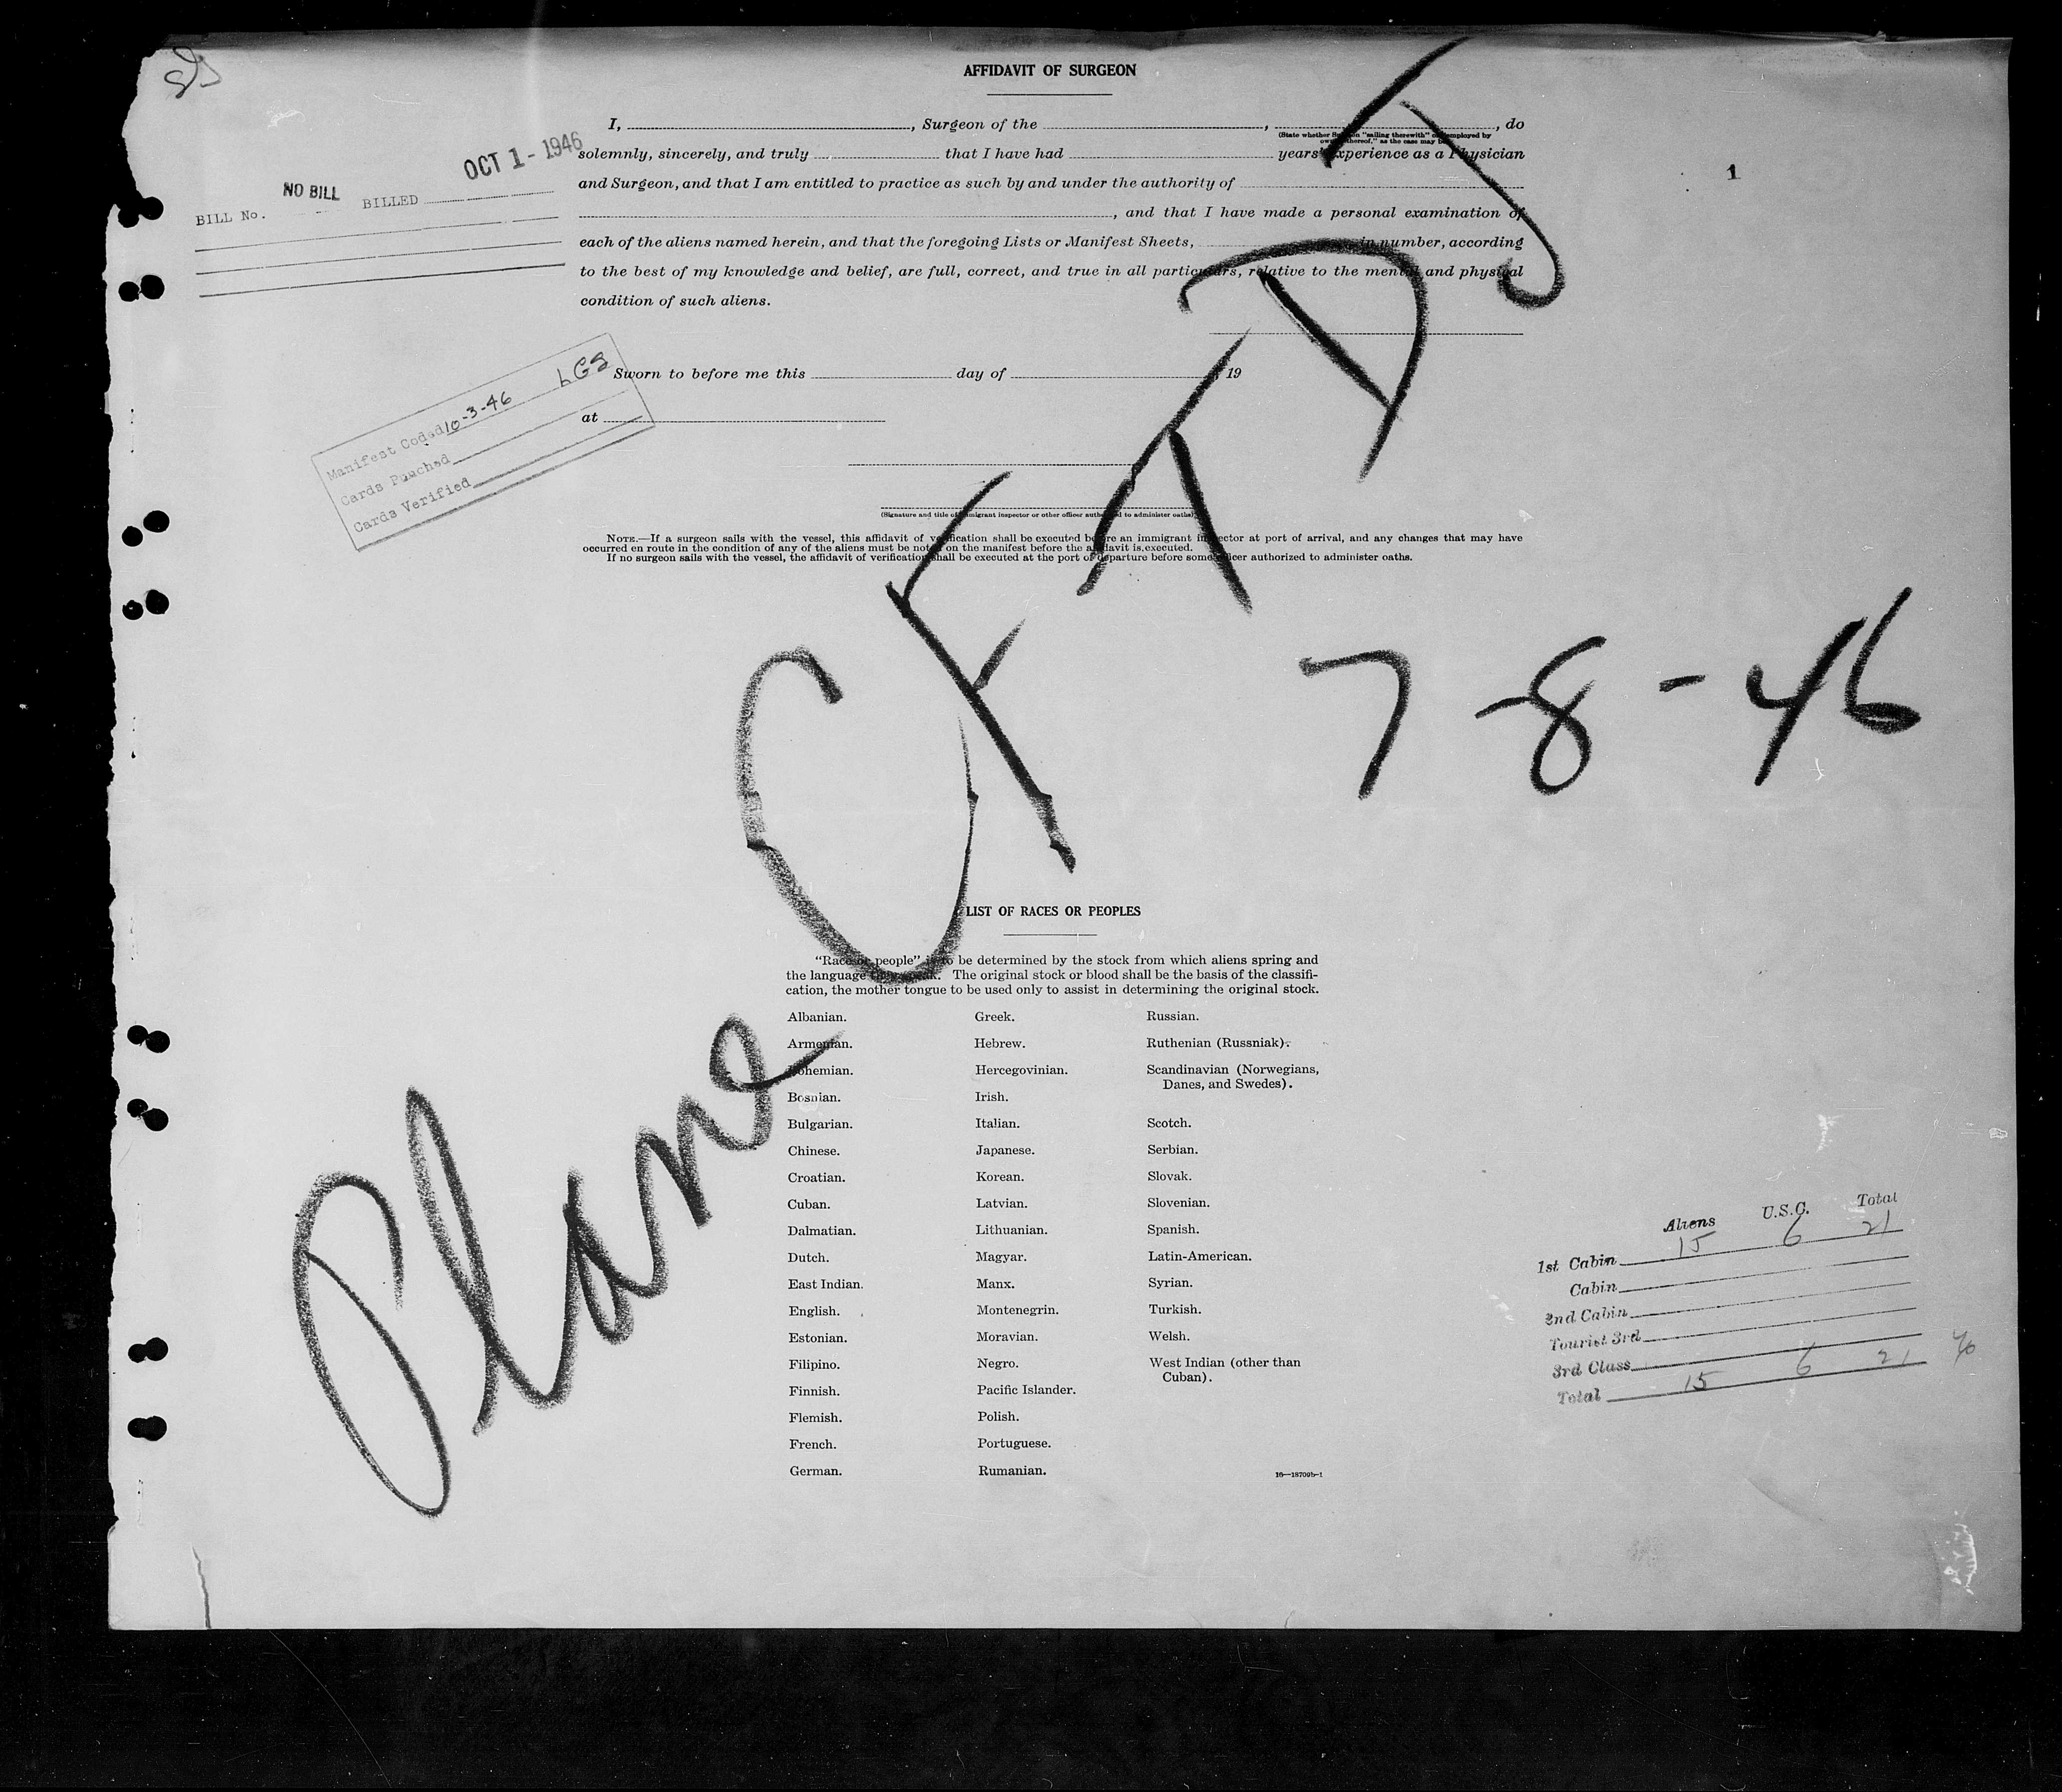 AFFIDAVIT OF SURGEON
I, , Surgeon of the , , do
(State whether Surgeon "sailing therewith" or employed by
owners thereof," as the case may be)
solemnly, sincerely, and truly that I have had years' experience as a Physician
and Surgeon, and that I am entitled to practice as such by and under the authority of
, and that I have made a personal examination of
each of the aliens named herein, and that the foregoing Lists or Manifest Sheets, in number, according
to the best of my knowledge and belief, are full, correct, and true in all particulars, relative to the mental and physical
condition of such aliens.
OCT 1 - 1946
NO BILL
BILL No. BILLED
1
Sworn to before me this day of , 19
at
Manifest Coded 10-3-46 LGS
Cards Pouched
Cards Verified
(Signature and title of immigrant inspector or other officer authorized to administer oaths)
NOTE.—If a surgeon sails with the vessel, this affidavit of verification shall be executed before an immigrant inspector at port of arrival, and any changes that may have
occurred en route in the condition of any of the aliens must be noted on the manifest before the affidavit is executed.
If no surgeon sails with the vessel, the affidavit of verification shall be executed at the port of departure before some officer authorized to administer oaths.
Plane CF TDJ
7-8-46
LIST OF RACES OR PEOPLES
"Race or people" is to be determined by the stock from which aliens spring and
the language they speak. The original stock or blood shall be the basis of the classifi-
cation, the mother tongue to be used only to assist in determining the original stock.
Albanian. Greek. Russian.
Armenian. Hebrew. Ruthenian (Russniak).
Bohemian. Hercegovinian. Scandinavian (Norwegians,
Danes, and Swedes).
Bosnian. Irish.
Bulgarian. Italian. Scotch.
Chinese. Japanese. Serbian.
Croatian. Korean. Slovak.
Cuban. Latvian. Slovenian.
Dalmatian. Lithuanian. Spanish.
Dutch. Magyar. Latin-American.
East Indian. Manx. Syrian.
English. Montenegrin. Turkish.
Estonian. Moravian. Welsh.
Filipino. Negro. West Indian (other than
Cuban).
Finnish. Pacific Islander.
Flemish. Polish.
French. Portuguese.
German. Rumanian.
16—18709b-1
Aliens U.S.C. Total
1st Cabin 15 6 21
Cabin
2nd Cabin
Tourist 3rd
3rd Class
Total 15 6 21